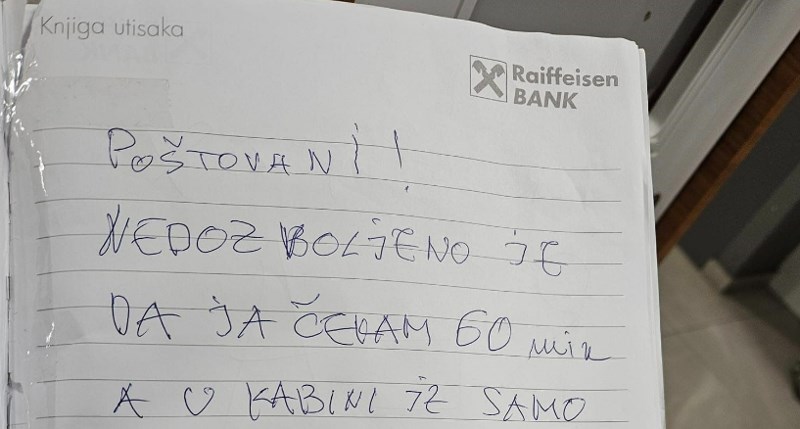 Knjiga utisaka
Raiffeisen
BANK
POŠTOVANI!
NEDOZVOLJENO JE
DA JA ČEKAM 60 min
A U KABINI JE SAMO